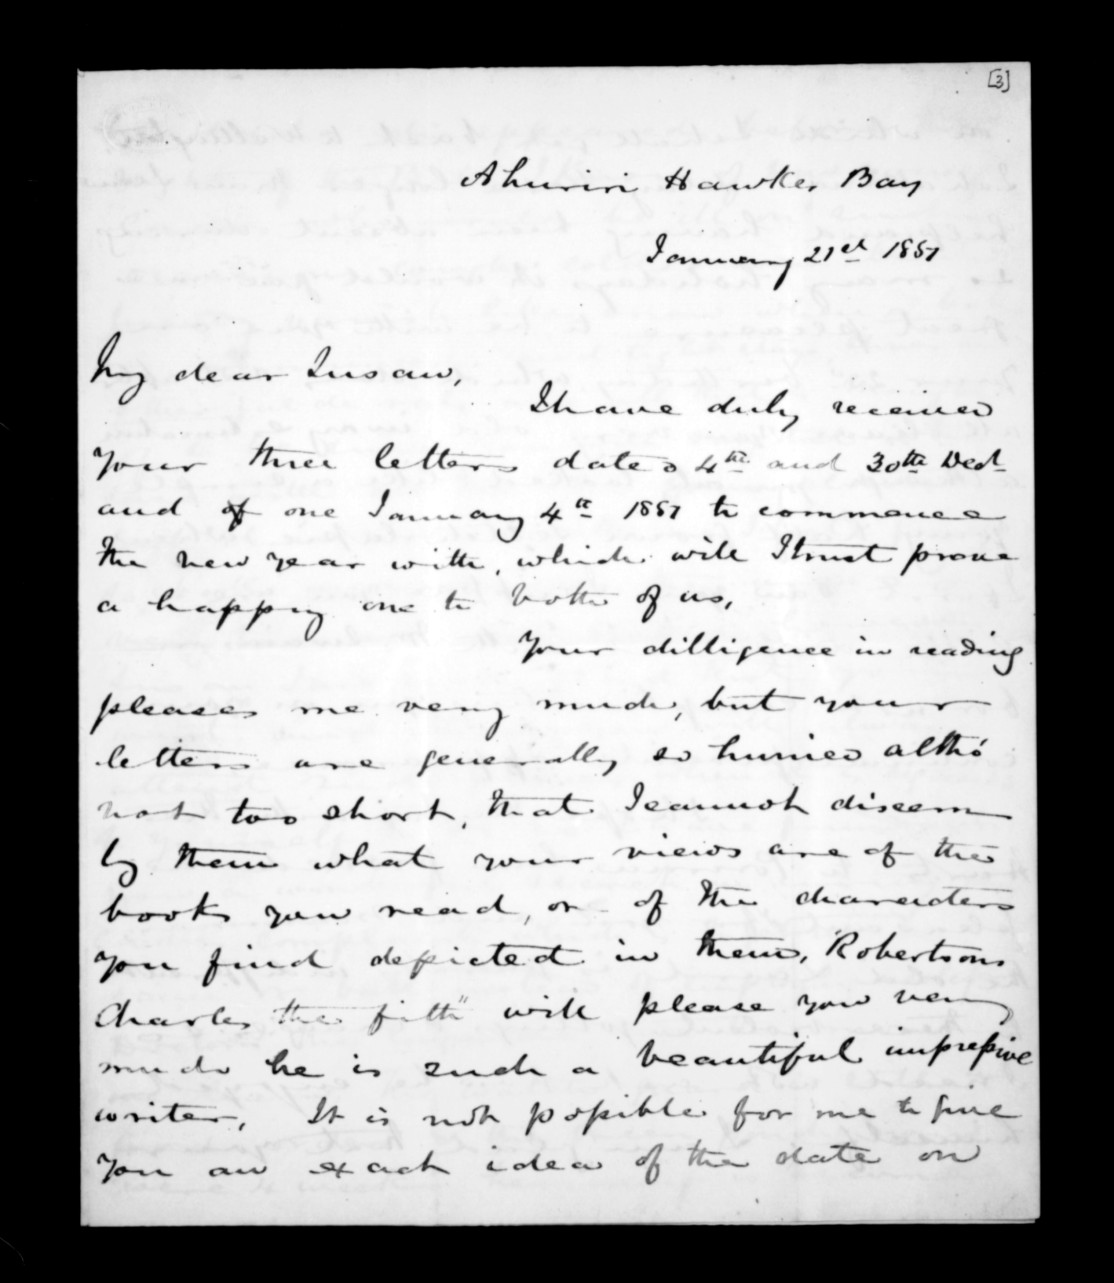 [3]
Ahuriri Hawkes Bay
January 21st 1851
My dear Susan,
I have duly received
your three letters dated 4th and 30th Decr
and of one January 4th 1851 to commence
the new year with, which will I trust prove
a happy one to both of us.
Your dilligence in reading
pleases me very much, but your
letters are generally so hurried altho'
not too short, that I cannot discern
by them what your views are of the
books you read, or of the characters
you find depicted in them, Robertsons
Charles the fifth" will please you very
much he is such a beautiful impressive
writer, It is not possible for me to give
you an exact idea of the date on